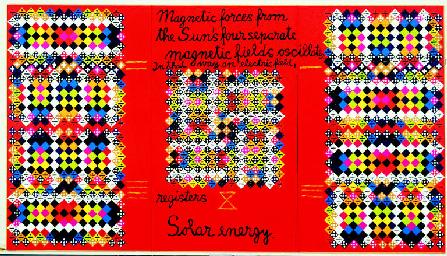 Magnetic forces from
the Sun's four separate
magnetic fields oscillate
In that way an electric field,
registers
Solar energy